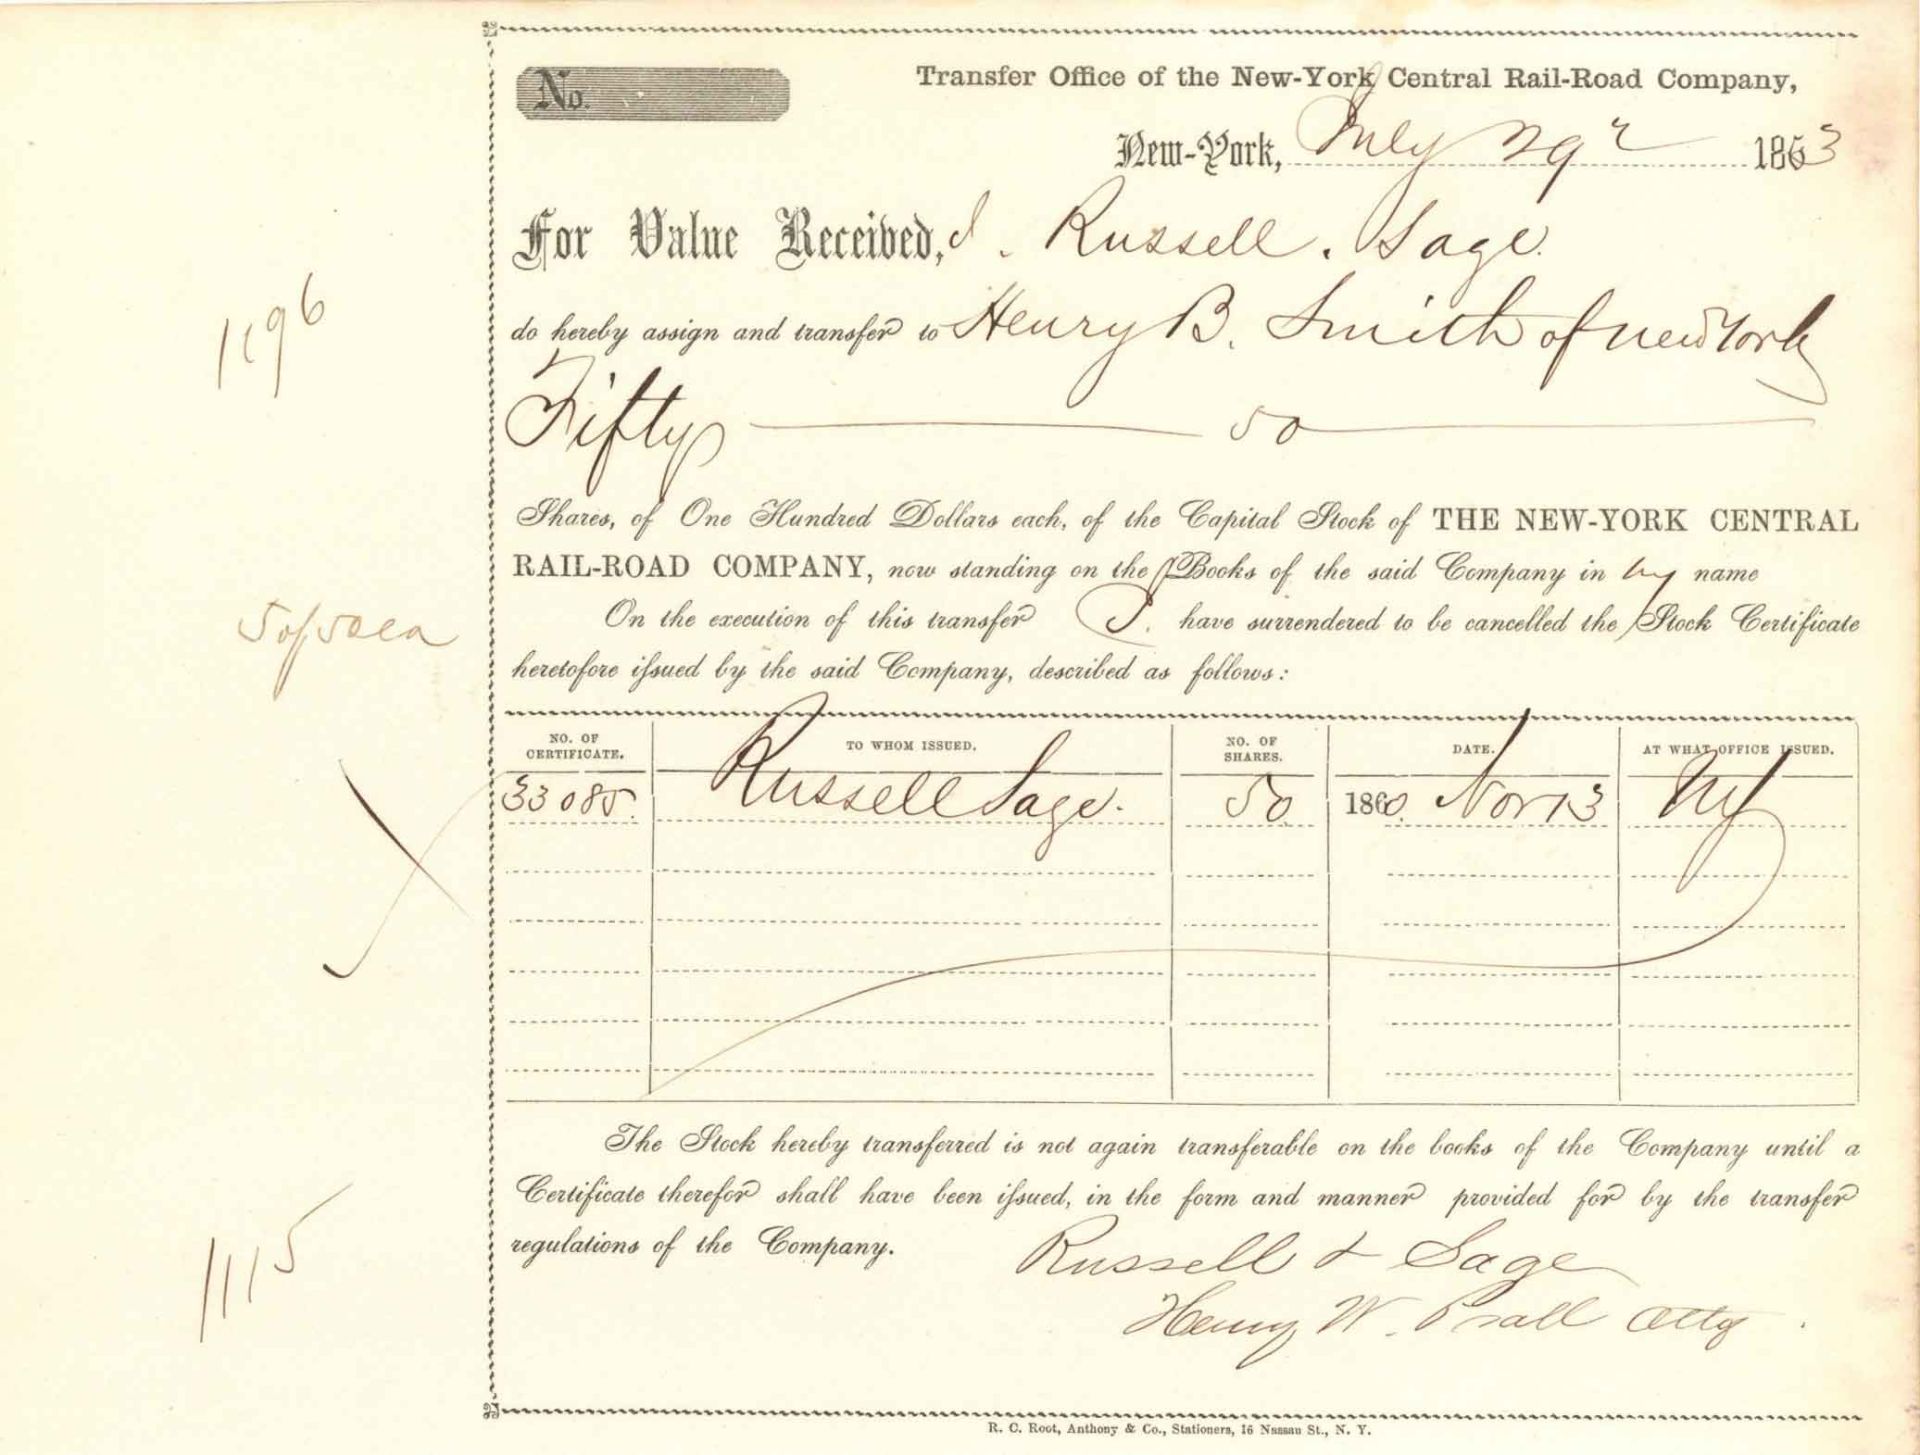 No.
Transfer Office of the New-York Central Rail-Road Company,
New-York, July 29 1863
For Value Received, I. Russell. Sage.
do hereby assign and transfer to Henry B. Smith of New York
Fifty 50
Shares, of One Hundred Dollars each, of the Capital Stock of THE NEW-YORK CENTRAL
RAIL-ROAD COMPANY, now standing on the Books of the said Company in my name
On the execution of this transfer I. have surrendered to be cancelled the Stock Certificate
heretofore issued by the said Company, described as follows:
NO. OF CERTIFICATE. TO WHOM ISSUED. NO. OF SHARES. DATE. AT WHAT OFFICE ISSUED.
33085. Russell Sage. 50 1860. Nov 13 NY
The Stock hereby transferred is not again transferable on the books of the Company until a
Certificate therefor shall have been issued, in the form and manner provided for by the transfer
regulations of the Company.
Russell Sage
Henry W. Prall Atty.
R. C. Root, Anthony & Co., Stationers, 16 Nassau St., N. Y.
1196
1115